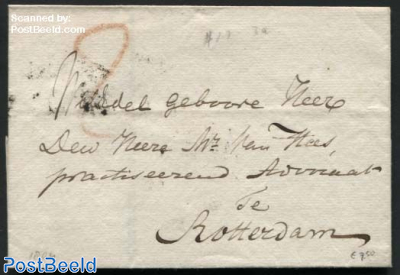 Scanned by:
PostBeeld.com
Weledel geboore Heer
Den Heere Mr. Van Hees,
practiseerend Advocaat
Te
Rotterdam
PostBeeld